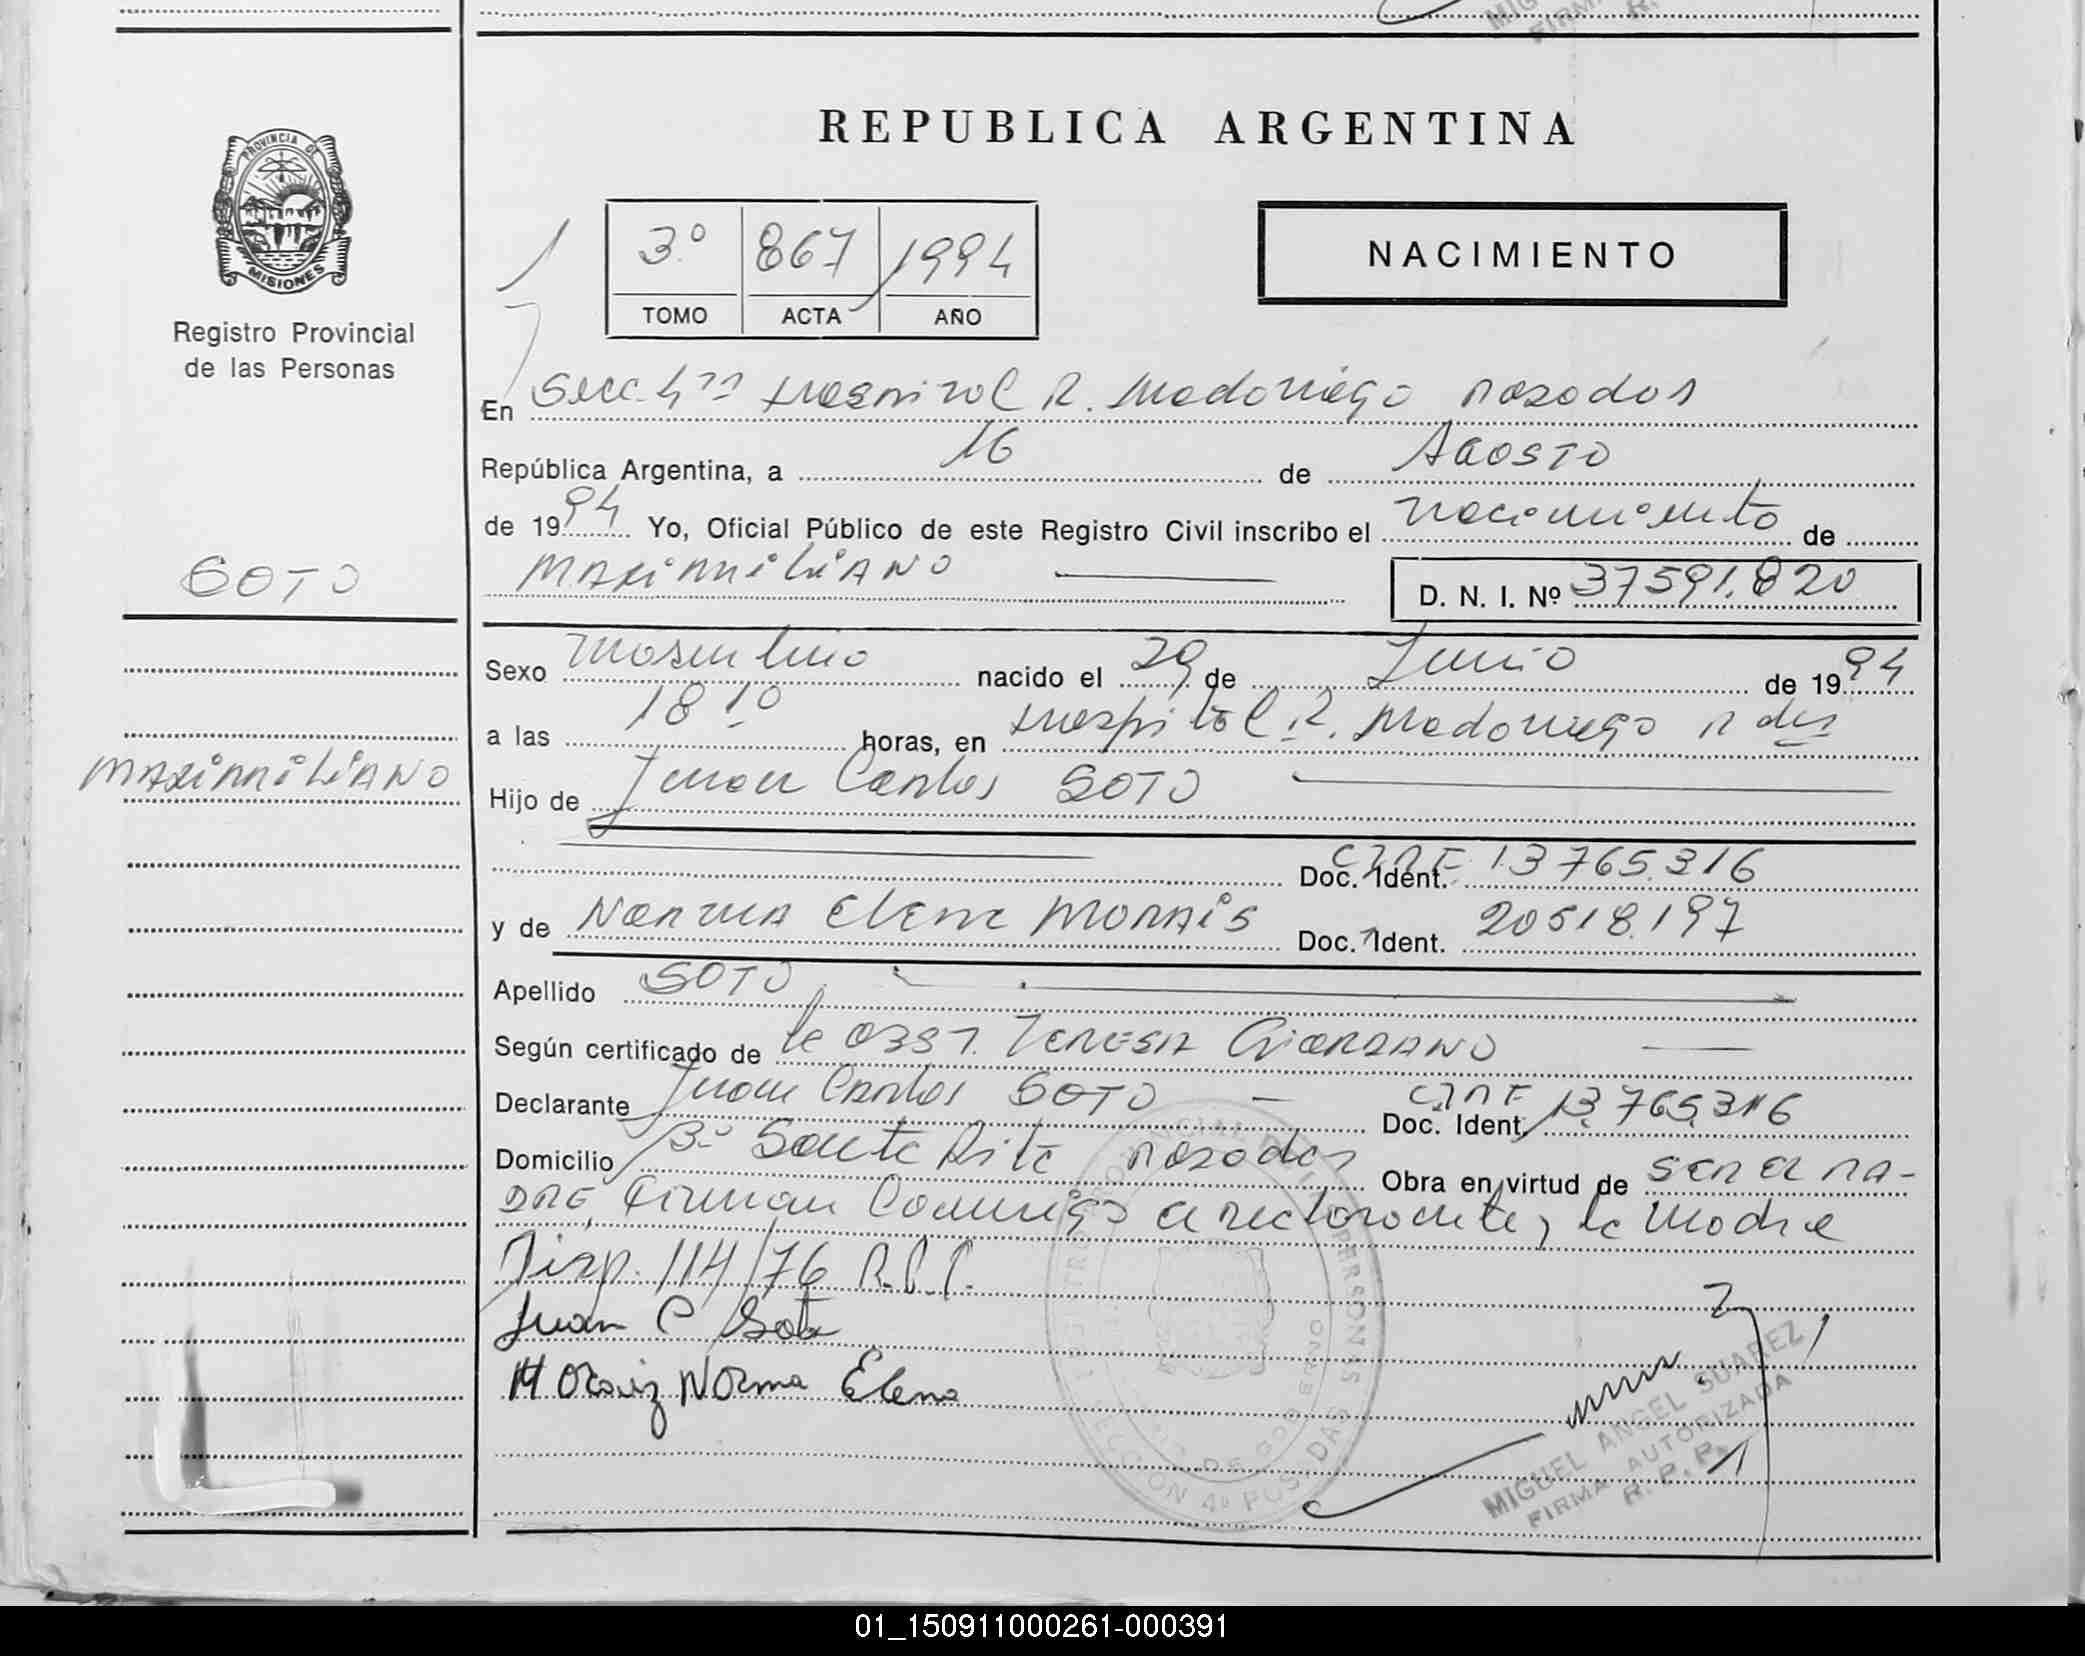 MIG
FIRM
R.
PROVINCIA DE
MISIONES
Registro Provincial
de las Personas
SOTO
MAXIMILIANO
REPUBLICA ARGENTINA
3º 867 1994
TOMO ACTA AÑO
NACIMIENTO
En Secc. 4ta Hospital R. Madariaga Posadas
República Argentina, a 16 de Agosto
de 1994 Yo, Oficial Público de este Registro Civil inscribo el nacimiento de
MAXIMILIANO D. N. I. Nº 37591.820
Sexo masculino nacido el 29 de Junio de 1994
a las 18 10 horas, en Hospital R. Madariaga Pdas
Hijo de Juan Carlos SOTO
Doc. Ident. 13765.316
y de Norma Elena MORAIS Doc. Ident. 20518.197
Apellido SOTO
Según certificado de la OBST. TERESA GIORDANO
Declarante Juan Carlos SOTO Doc. Ident. 13.765.316
Domicilio Bº Santa Rita Posadas Obra en virtud de SER EL PA-
DRE, Firman Conmigo el declarante y la Madre
Disp. 114/76 R.P.P.
Juan C Soto
Moraiz Norma Elena
REGISTRO PROVINCIAL DE LAS PERSONAS
SECCION 4a POSADAS
MIGUEL ANGEL SUAREZ
FIRMA AUTORIZADA
R. P. P.
01_150911000261-000391